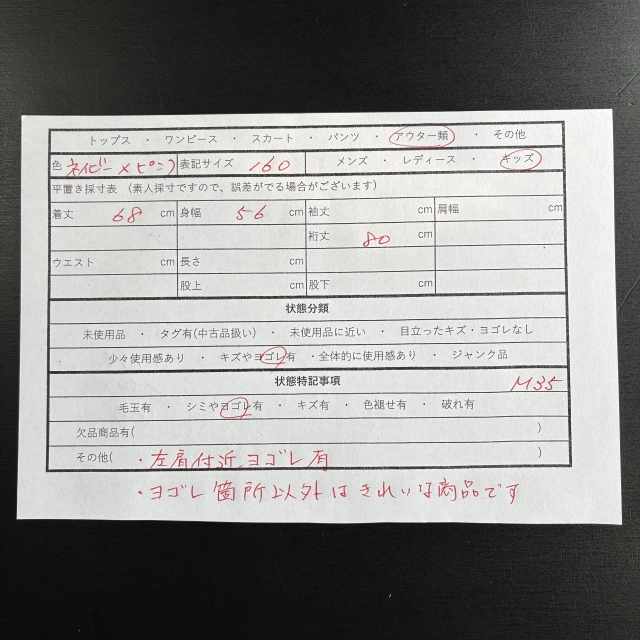 トップス ・ ワンピース ・ スカート ・ パンツ ・ アウター類 ・ その他
色 ネイビー×ピンク 表記サイズ 160 メンズ ・ レディース ・ キッズ
平置き採寸表 （素人採寸ですので、誤差がでる場合がございます）
着丈 68 cm 身幅 56 cm 袖丈 cm 肩幅 cm
裄丈 80 cm
ウエスト cm 長さ cm cm
股上 cm 股下 cm
状態分類
未使用品 ・ タグ有(中古品扱い) ・ 未使用品に近い ・ 目立ったキズ・ヨゴレなし
少々使用感あり ・ キズやヨゴレ有 ・全体的に使用感あり ・ ジャンク品
状態特記事項 M35
毛玉有 ・ シミやヨゴレ有 ・ キズ有 ・ 色褪せ有 ・ 破れ有
欠品商品有( )
その他( ・左肩付近ヨゴレ有 )
・ヨゴレ箇所以外はきれいな商品です